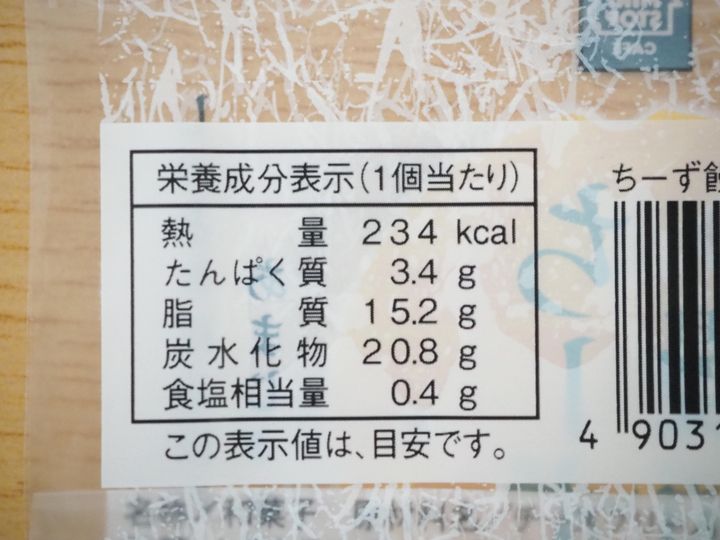 MINI
STOP
CAFE
栄養成分表示(1個当たり)
熱量 234 kcal
たんぱく質 3.4 g
脂質 15.2 g
炭水化物 20.8 g
食塩相当量 0.4 g
この表示値は、目安です。
ちーず饅
4 9031